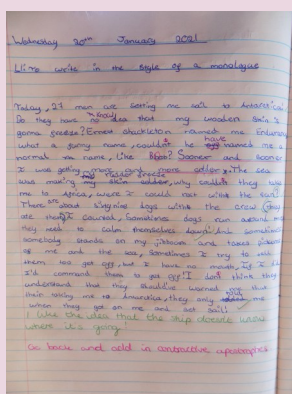 Wednesday 20th January 2021
LI: to write in the style of a monologue
Today, 27 men are getting me sail to Antarctica!
Do they have no know idea that my wooden sails
gonna freeze? Ernest shackleton named me Endurance
what a funny name, couldn't he have named me a
normal name, like Boat? Sooner and sooner
I was getting more and more colder. The sea
was making my skin colder, why couldn't they take
me to Africa, where I could rest with the sun?
There are about sixty nine dogs with the crew (they
ate them) I counted, Sometimes dogs run around me
they need to calm themselves down! And sometimes
somebody stands on my jibboom and takes pictures
of me and the sea, Sometimes I try to tell
them too get off, but I have no mouth, if I did
I'd command them to get off! I don't think they
understand that they should've warned me that
their taking me to Antarctica, they only told me
when they got on me and set sail!
I like the idea that the ship doesn't know
where it's going!
Go back and add in contractive apostrophes